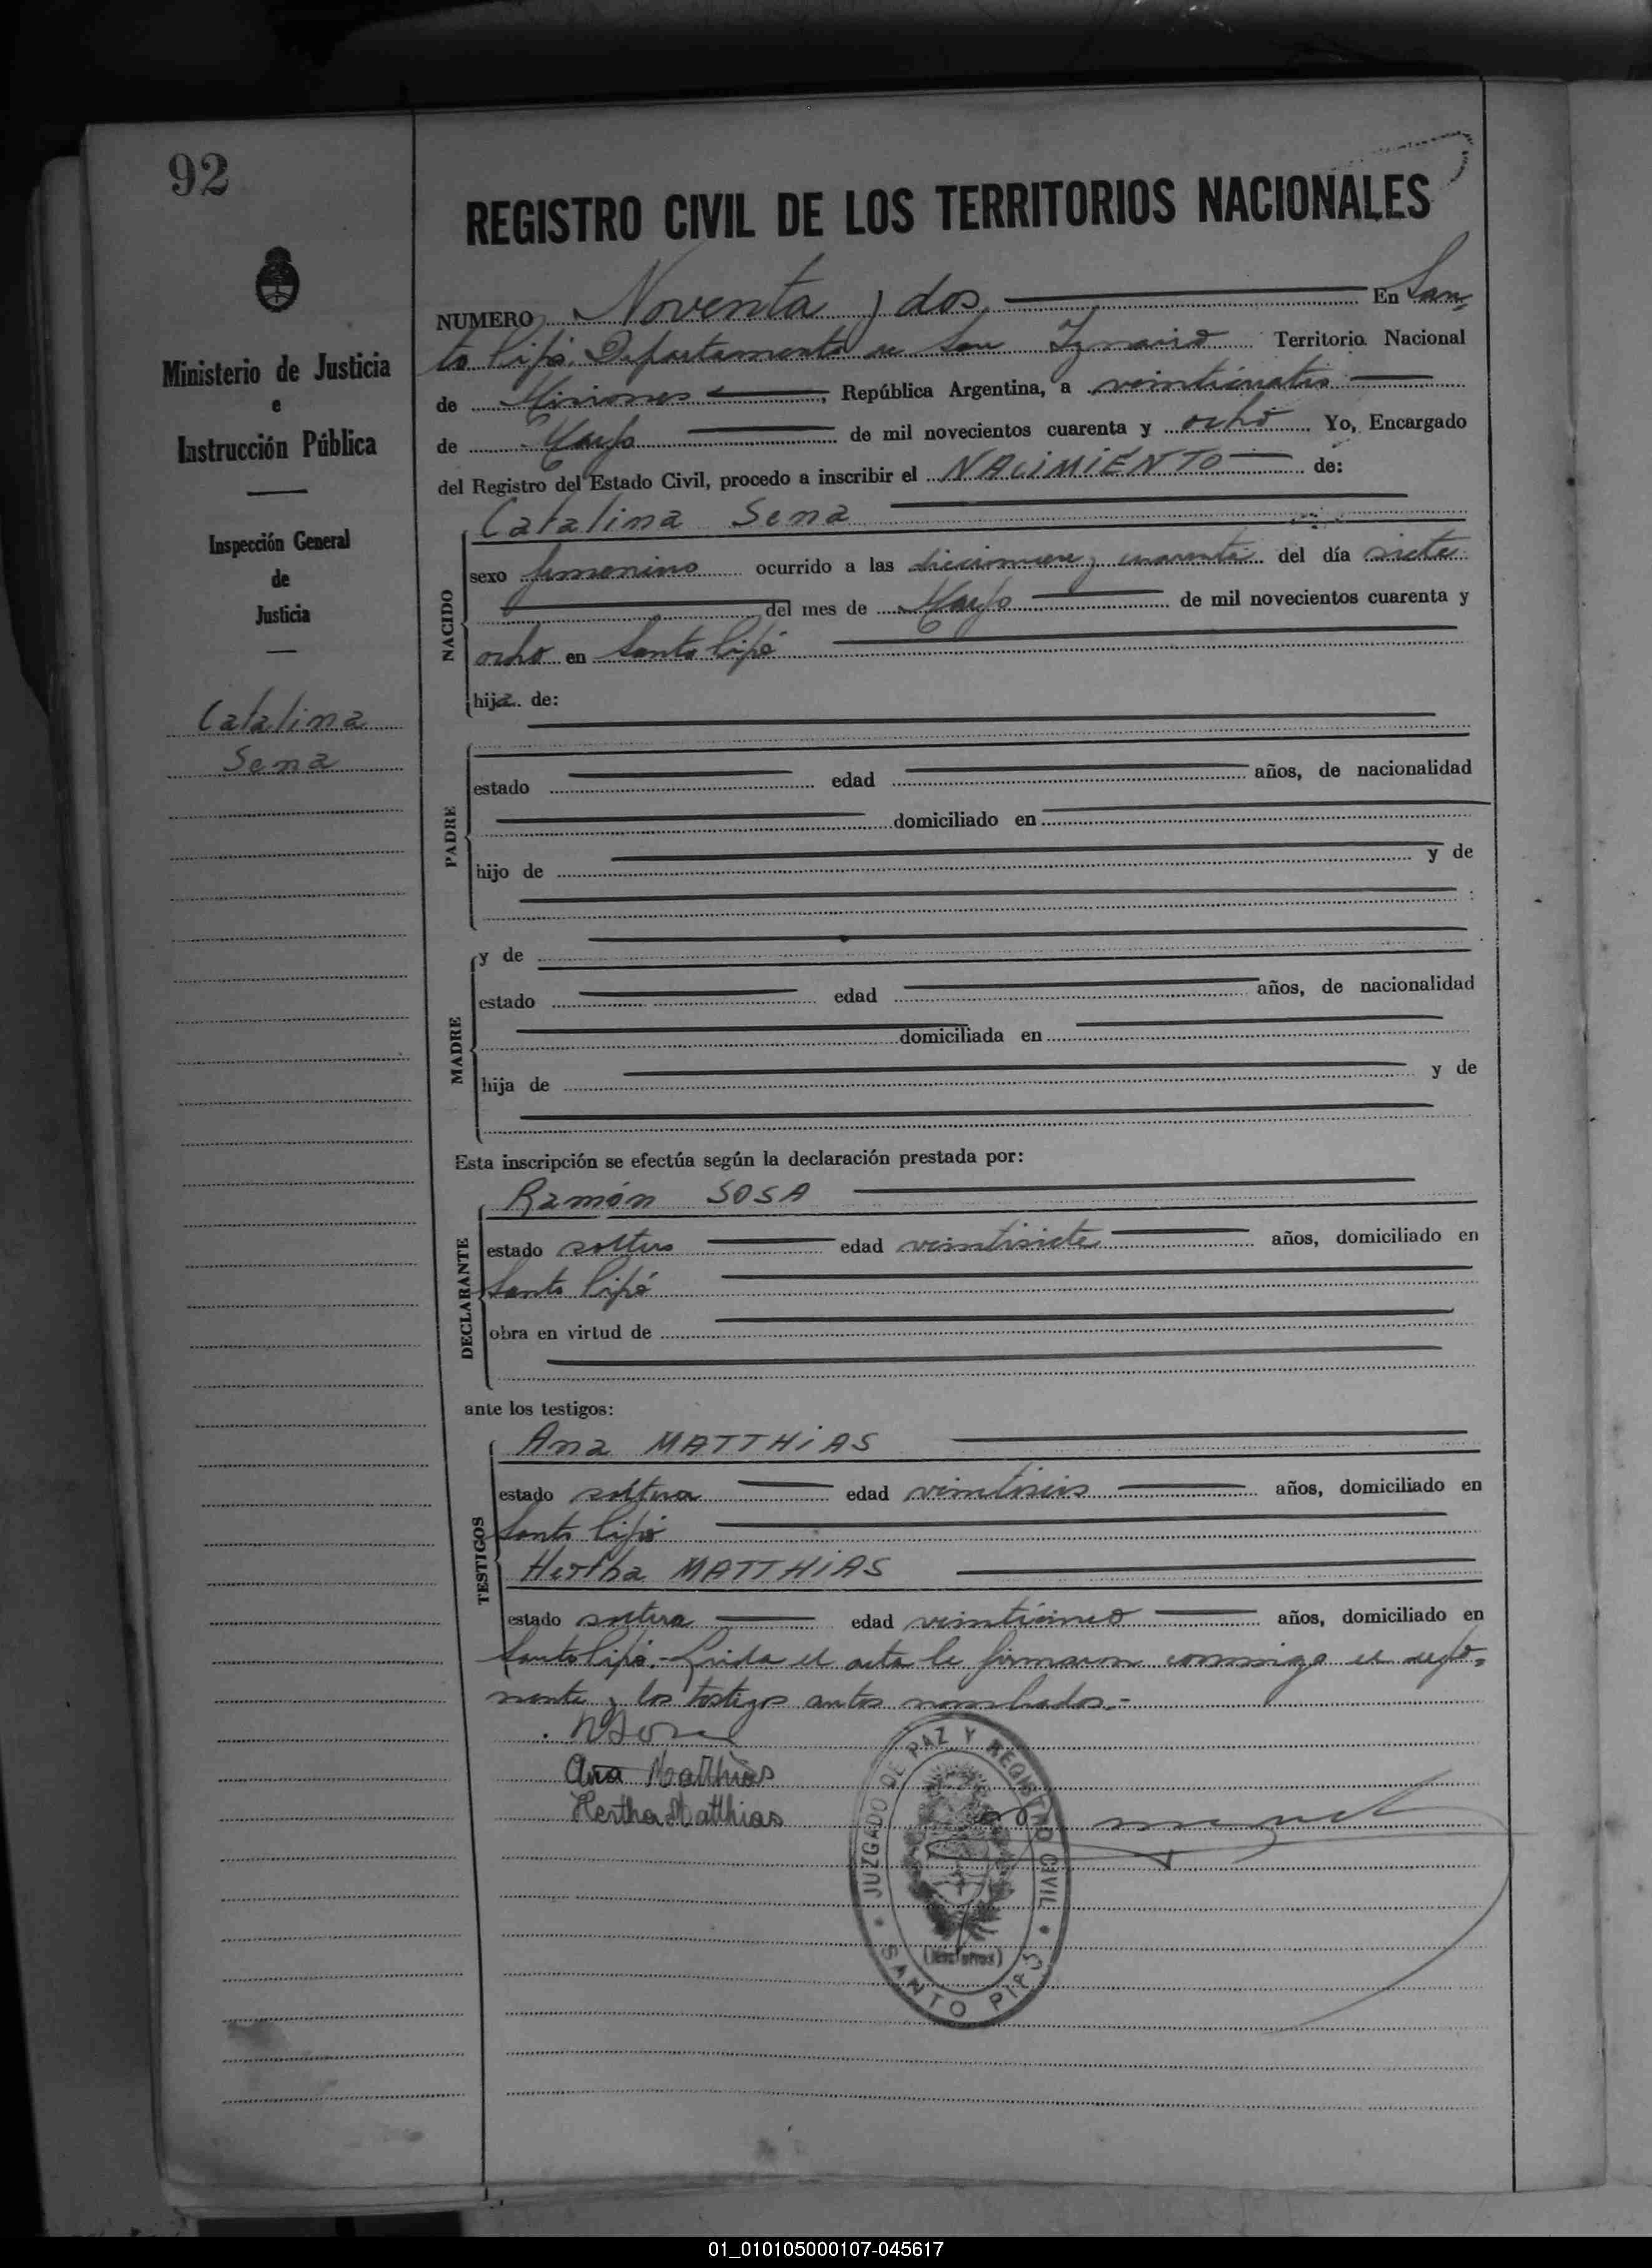 92
REGISTRO CIVIL DE LOS TERRITORIOS NACIONALES
Ministerio de Justicia
e
Instrucción Pública
Inspección General
de
Justicia
Catalina
Sena
NUMERO Noventa y dos En San-
to Pipó Departamento de San Ignacio Territorio Nacional
de Misiones, República Argentina, a veinticuatro
de Mayo de mil novecientos cuarenta y ocho Yo, Encargado
del Registro del Estado Civil, procedo a inscribir el NACIMIENTO de:
NACIDO
Catalina Sena
sexo femenino ocurrido a las diecinueve y cuarenta del día siete
del mes de Mayo de mil novecientos cuarenta y
ocho en Santo Pipó
hija de:
PADRE
estado edad años, de nacionalidad
domiciliado en
hijo de y de
MADRE
y de
estado edad años, de nacionalidad
domiciliada en
hija de y de
Esta inscripción se efectúa según la declaración prestada por:
DECLARANTE
Ramón SOSA
estado soltero edad veintisiete años, domiciliado en
Santo Pipó
obra en virtud de
ante los testigos:
TESTIGOS
Ana MATTHIAS
estado soltera edad veintiseis años, domiciliado en
Santo Pipó
Hertha MATTHIAS
estado soltera edad veinticinco años, domiciliado en
Santo Pipó.- Leida el acta la firmaron conmigo el
y los testigos antes nombrados.-
RSosa
Ana Matthias
Hertha Matthias
JUZGADO DE PAZ Y REGISTRO CIVIL
SANTO PIPÓ
(Misiones)
01_010105000107-045617